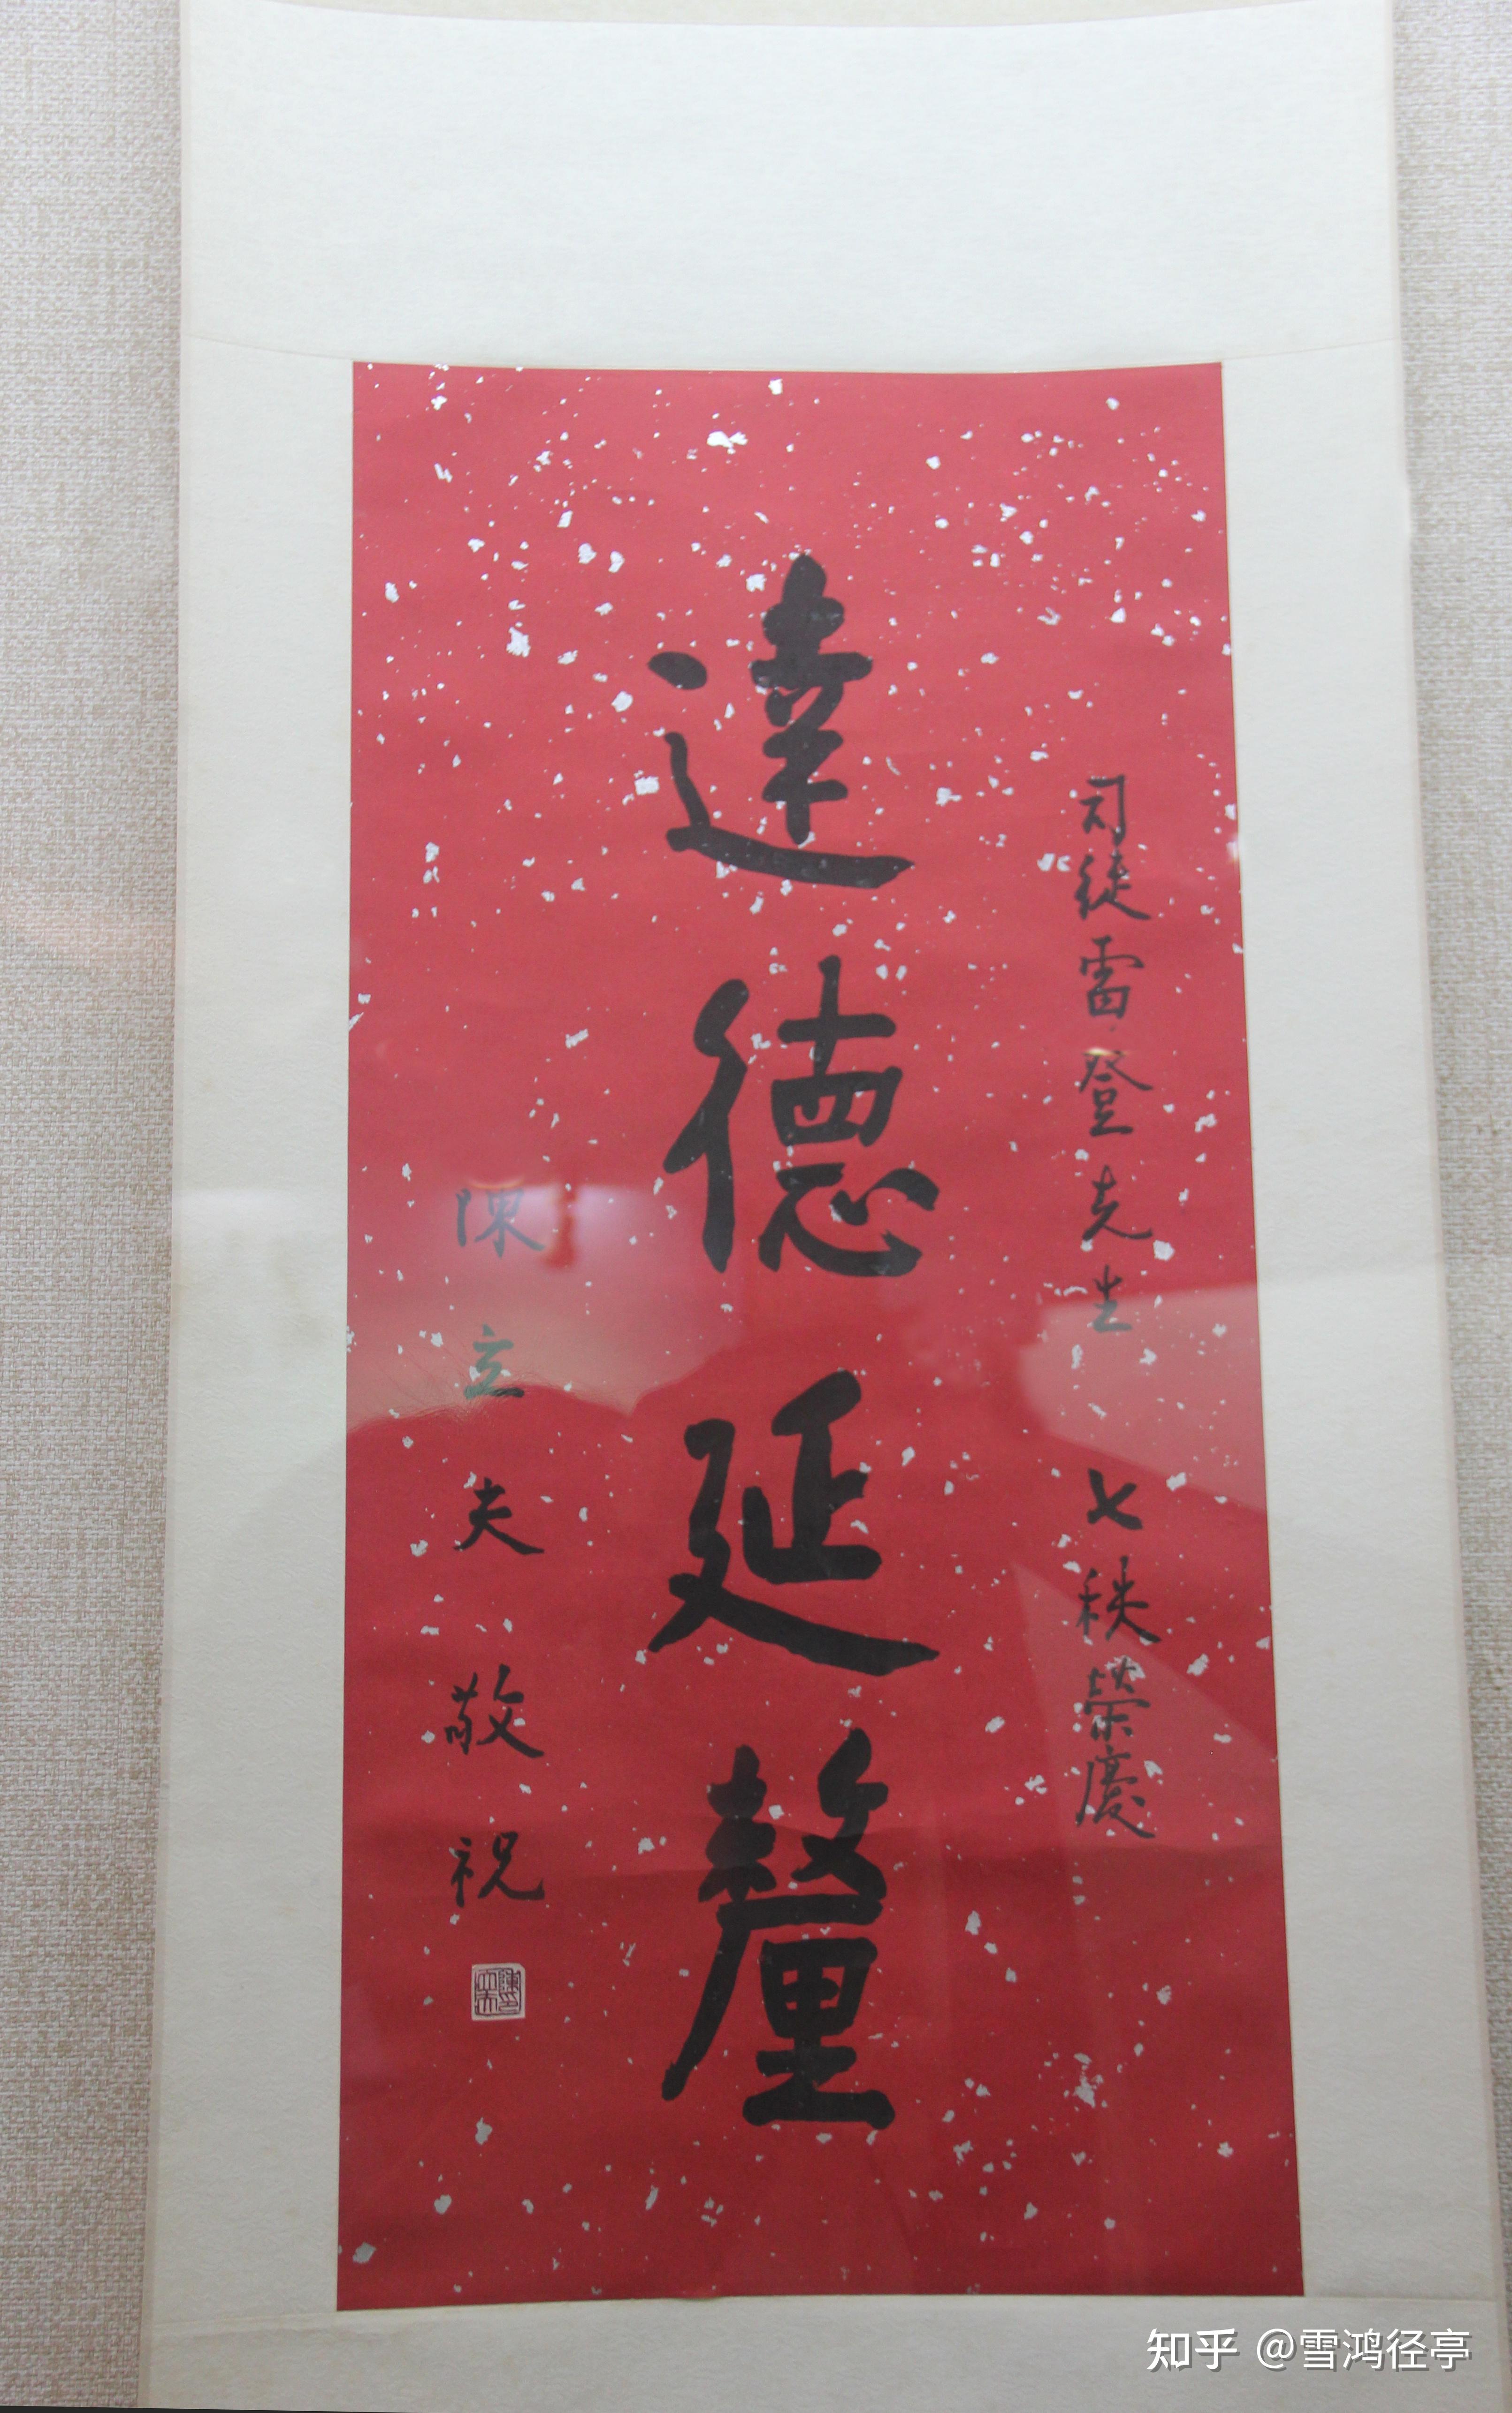 司徒雷登先生 七秩榮慶
達德延釐
陳立夫敬祝
知乎 @雪鸿径亭